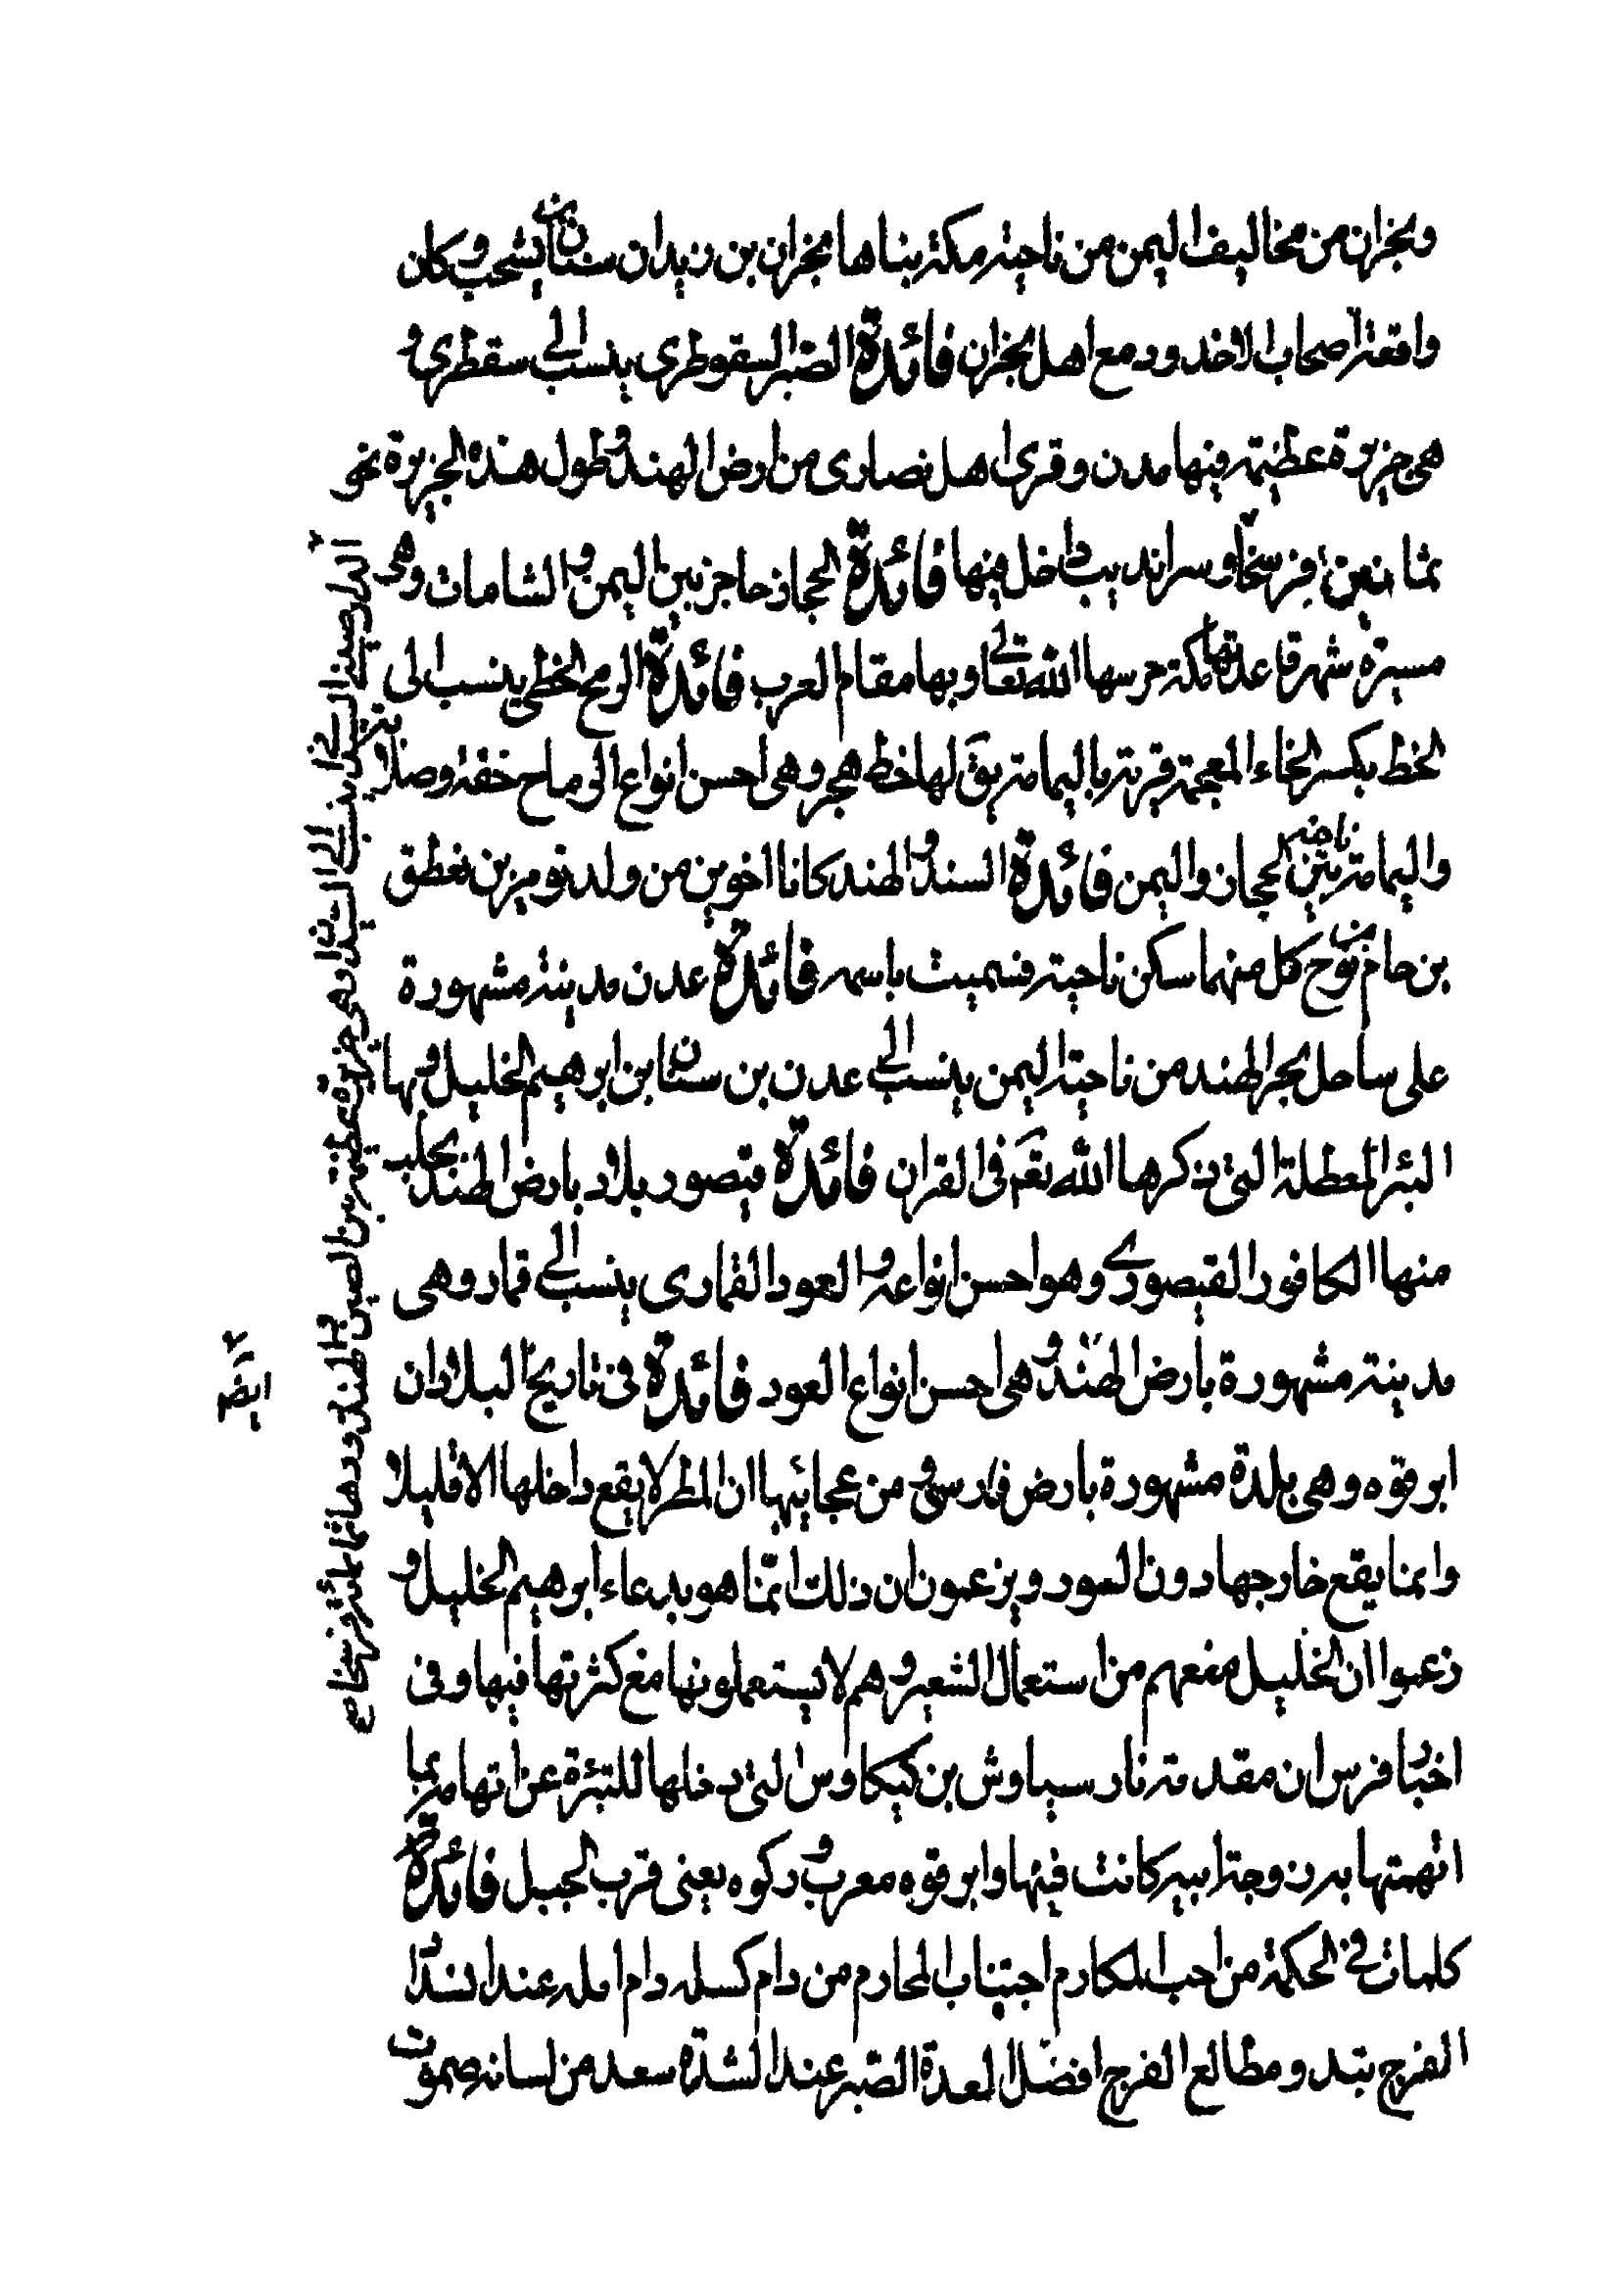 ونجران من مخاليف اليمن من ناحية مكة بناها نجران بن زيدان بن سبأ بن يشحب و كان
واقعة اصحاب الاخدود مع اهل نجران فائدة الصبر السقوطرى ينسب الى سقطرى و
هى جزيرة عظيمة فيها مدن و قرى اهل نصارى من ارض الهند و طول هذه الجزيرة نحو
ثمانين فرسخا و سرانديب داخل فيها فائدة الحجاز حاجز بين اليمن و الشامات وهى
مسيرة شهر قاعدتها مكة حرسها الله تعالى و بها مقام العرب فائدة الرمح الخطى ينسب الى
الخط بكسر الخاء المعجمة قرية باليمامة يق لها خط هجر و هى احسن انواع الرماح خفة وصلابة
واليمامة ناحية بين الحجاز واليمن فائدة السند و الهند كانا اخوين من ولد نوفير بن نغطق
بن حام بن نوح كل منهما سكن ناحية فسميت باسمه فائدة عدن مدينة مشهورة
على ساحل بحر الهند من ناحية اليمن ينسب الى عدن بن سنان بن ابرهيم الخليل و بها
البئر المعطلة التى ذكرها الله تعم فى القران فائدة قيصور بلاد بارض الهند يجلب
منها الكافور القيصورى وهو احسن انواعه و العود القمارى ينسب الى قمار وهى
مدينة مشهورة بارض الهند و هى احسن انواع العود فائدة فى تاريخ البلادان
ابرقوه وهى بلدة مشهورة بارض فارس و من عجائبها ان المطر لا يقع داخلها الا قليلا
وانما يقع خارجها دون السور ويزعمون ان ذلك انما هو بدعاء ابرهيم الخليل و
زعموا ان الخليل منعهم من استعمال الشعير و هم لا يستعملونها مع كثرتها فيها وفى
اخبار فرس ان مقدمة نار سياوش بن كيكاوس التى دخلها للتبئرة عن اتهامه بما
اتهمتها به زوجة ابيه كانت فيها وابرقوه معرب و ركوه يعنى قرب الجبل فائدة
كلمات فى الحكمة من احب المكارم اجتناب المحارم من دام كسله دام امله عند انسداد
الفرج تبدو مطالع الفرج افضل العدة الصبر عند الشدة سعد من لسانه صموت
الدار صينى الى ينسب الى وهى جزيرة عظيمة بين الصين و الهند و دورها ثمانمائة فرسخ
ايضه